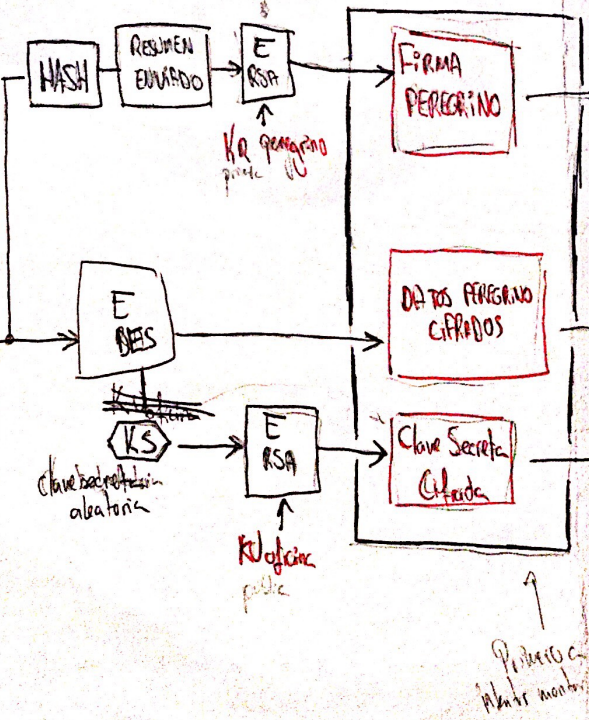 HASH
RESUMEN
ENVIADO
E
RSA
FIRMA
PEREGRINO
KR peregrino
E
DES
DATOS PEREGRINO
CIFRADOS
KS
clave secreta
aleatoria
E
RSA
Clave Secreta
Cifrada
KU oficina
Primero